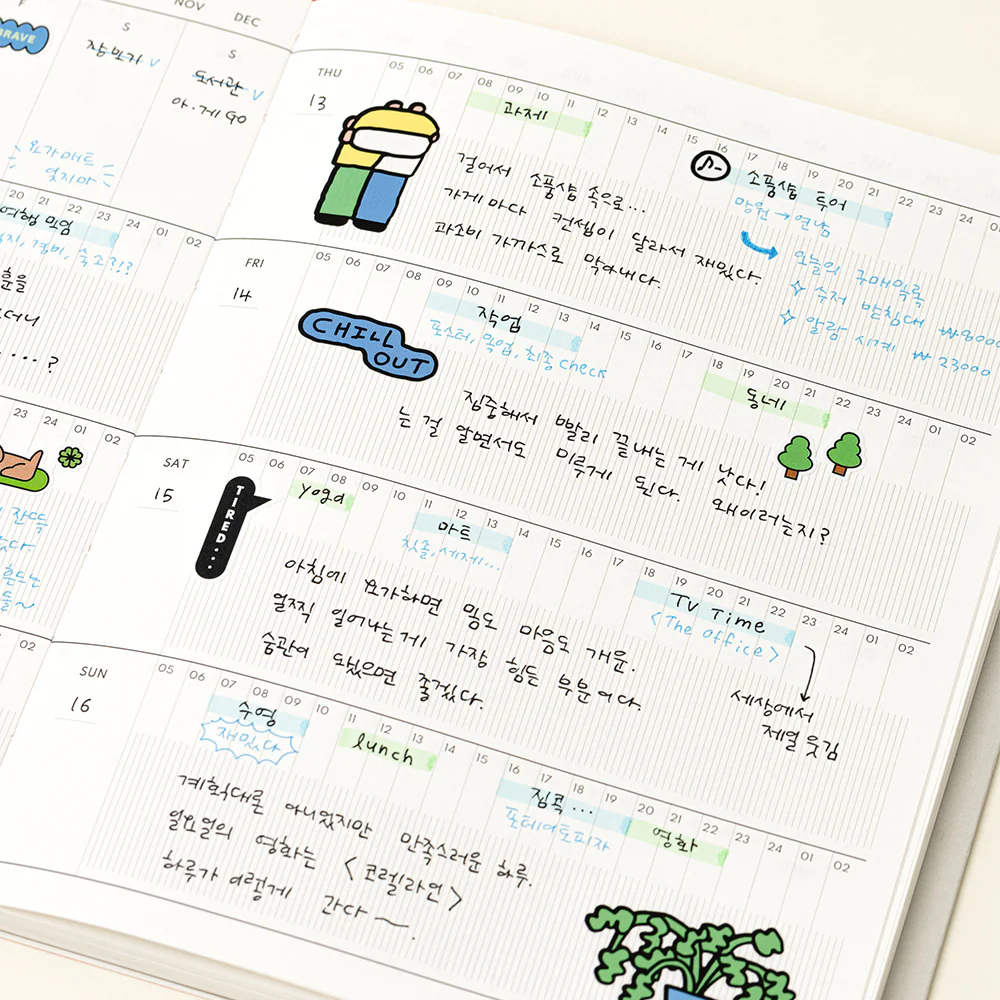 F
NOV
DEC
BRAVE
S
S
장보기
도서관
아·게 GO
요가매트
잊지마
20 21 22 23 24 01 02
여행 모임
경비, 숙소?!?
....?
23 24 01 02
02
THU
13
05 06 07 08 09 10 11 12 13 14 15 16 17 18 19 20 21 22 23 24
과제
소품샵 투어
망원→연남
걸어서 소품샵 속으로...
가게마다 컨셉이 달라서 재밌다.
과소비 가까스로 막아내다.
오늘의 구매목록
수저 받침대 ₩8000
알람 시계 ₩23000
FRI
14
05 06 07 08 09 10 11 12 13 14 15 16 17 18 19 20 21 22 23 24 01 02
CHILL
OUT
작업
포스터, 목업, 최종 check
동네
집중해서 빨리 끝내는 게 낫다!
는 걸 알면서도 미루게 된다. 왜이러는지?
SAT
15
05 06 07 08 09 10 11 12 13 14 15 16 17 18 19 20 21 22 23 24 01 02
TIRED...
yoga
마트
칫솔, 세제...
TV Time
<The office>
아침에 요가하면 몸도 마음도 개운.
일찍 일어나는게 가장 힘든 부분이다.
습관이 됐으면 좋겠다.
세상에서
제일 웃김
SUN
16
05 06 07 08 09 10 11 12 13 14 15 16 17 18 19 20 21 22 23 24 01 02
수영
재밌다
lunch
집콕...
포테이토피자
영화
계획대론 아니었지만 만족스러운 하루.
일요일의 영화는 <코렐라인>
하루가 이렇게 간다~.